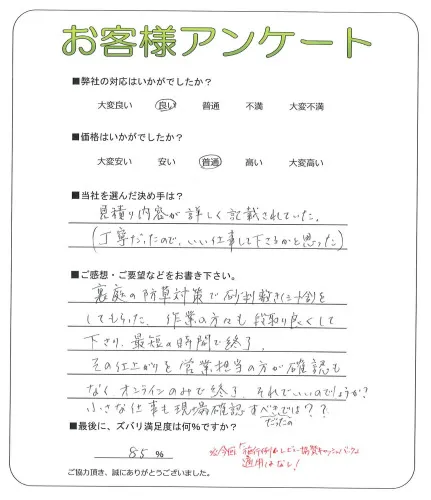 お客様アンケート
■弊社の対応はいかがでしたか？
大変良い 良い 普通 不満 大変不満
■価格はいかがでしたか？
大変安い 安い 普通 高い 大変高い
■当社を選んだ決め手は？
見積り内容が詳しく記載されていた。
（丁寧だったので、いい仕事して下さるかと思った）
■ご感想・ご要望などをお書き下さい。
裏庭の防草対策で砂利敷き(シート含)を
してもらった。作業の方々も段取り良くして
下さり、最短の時間で終了。
その仕上がりを営業担当の方が確認も
なくオンラインのみで終了。それでいいのでしょうか？
小さな仕事も現場確認すべきでは？？
だったの
■最後に、ズバリ満足度は何％ですか？
85 %
※今回「施行例&レビュー協賛キャッシュバック」
適用はなし！
ご協力頂き、誠にありがとうございました。